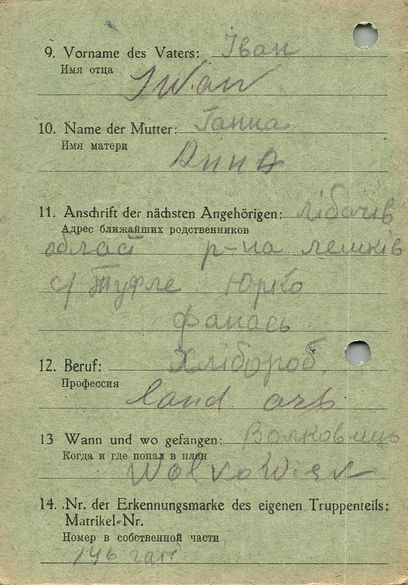 9. Vorname des Vaters: Іван
Имя отца
Iwan
10. Name der Mutter: Ганна
Имя матери
Анна
11. Anschrift der nächsten Angehörigen:
Адрес ближайших родственников
р-на
с/ Юрко
12. Beruf: Хлібороб.
Профессия
land arb
13 Wann und wo gefangen: Волковиць
Когда и где попал в плен
Wolkowiek
14. Nr. der Erkennungsmarke des eigenen Truppenteils:
Matrikel-Nr.
Номер в собственной части
146